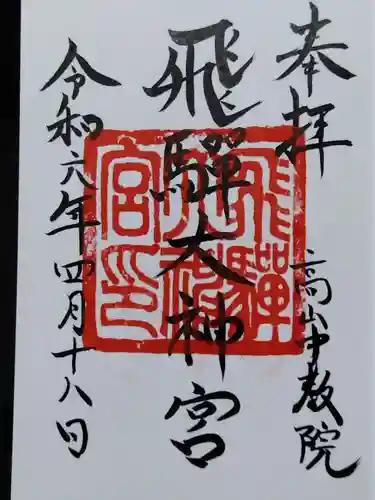 奉拝
高山中教院
飛騨大神宮
飛騨大神宮印
令和六年四月十八日